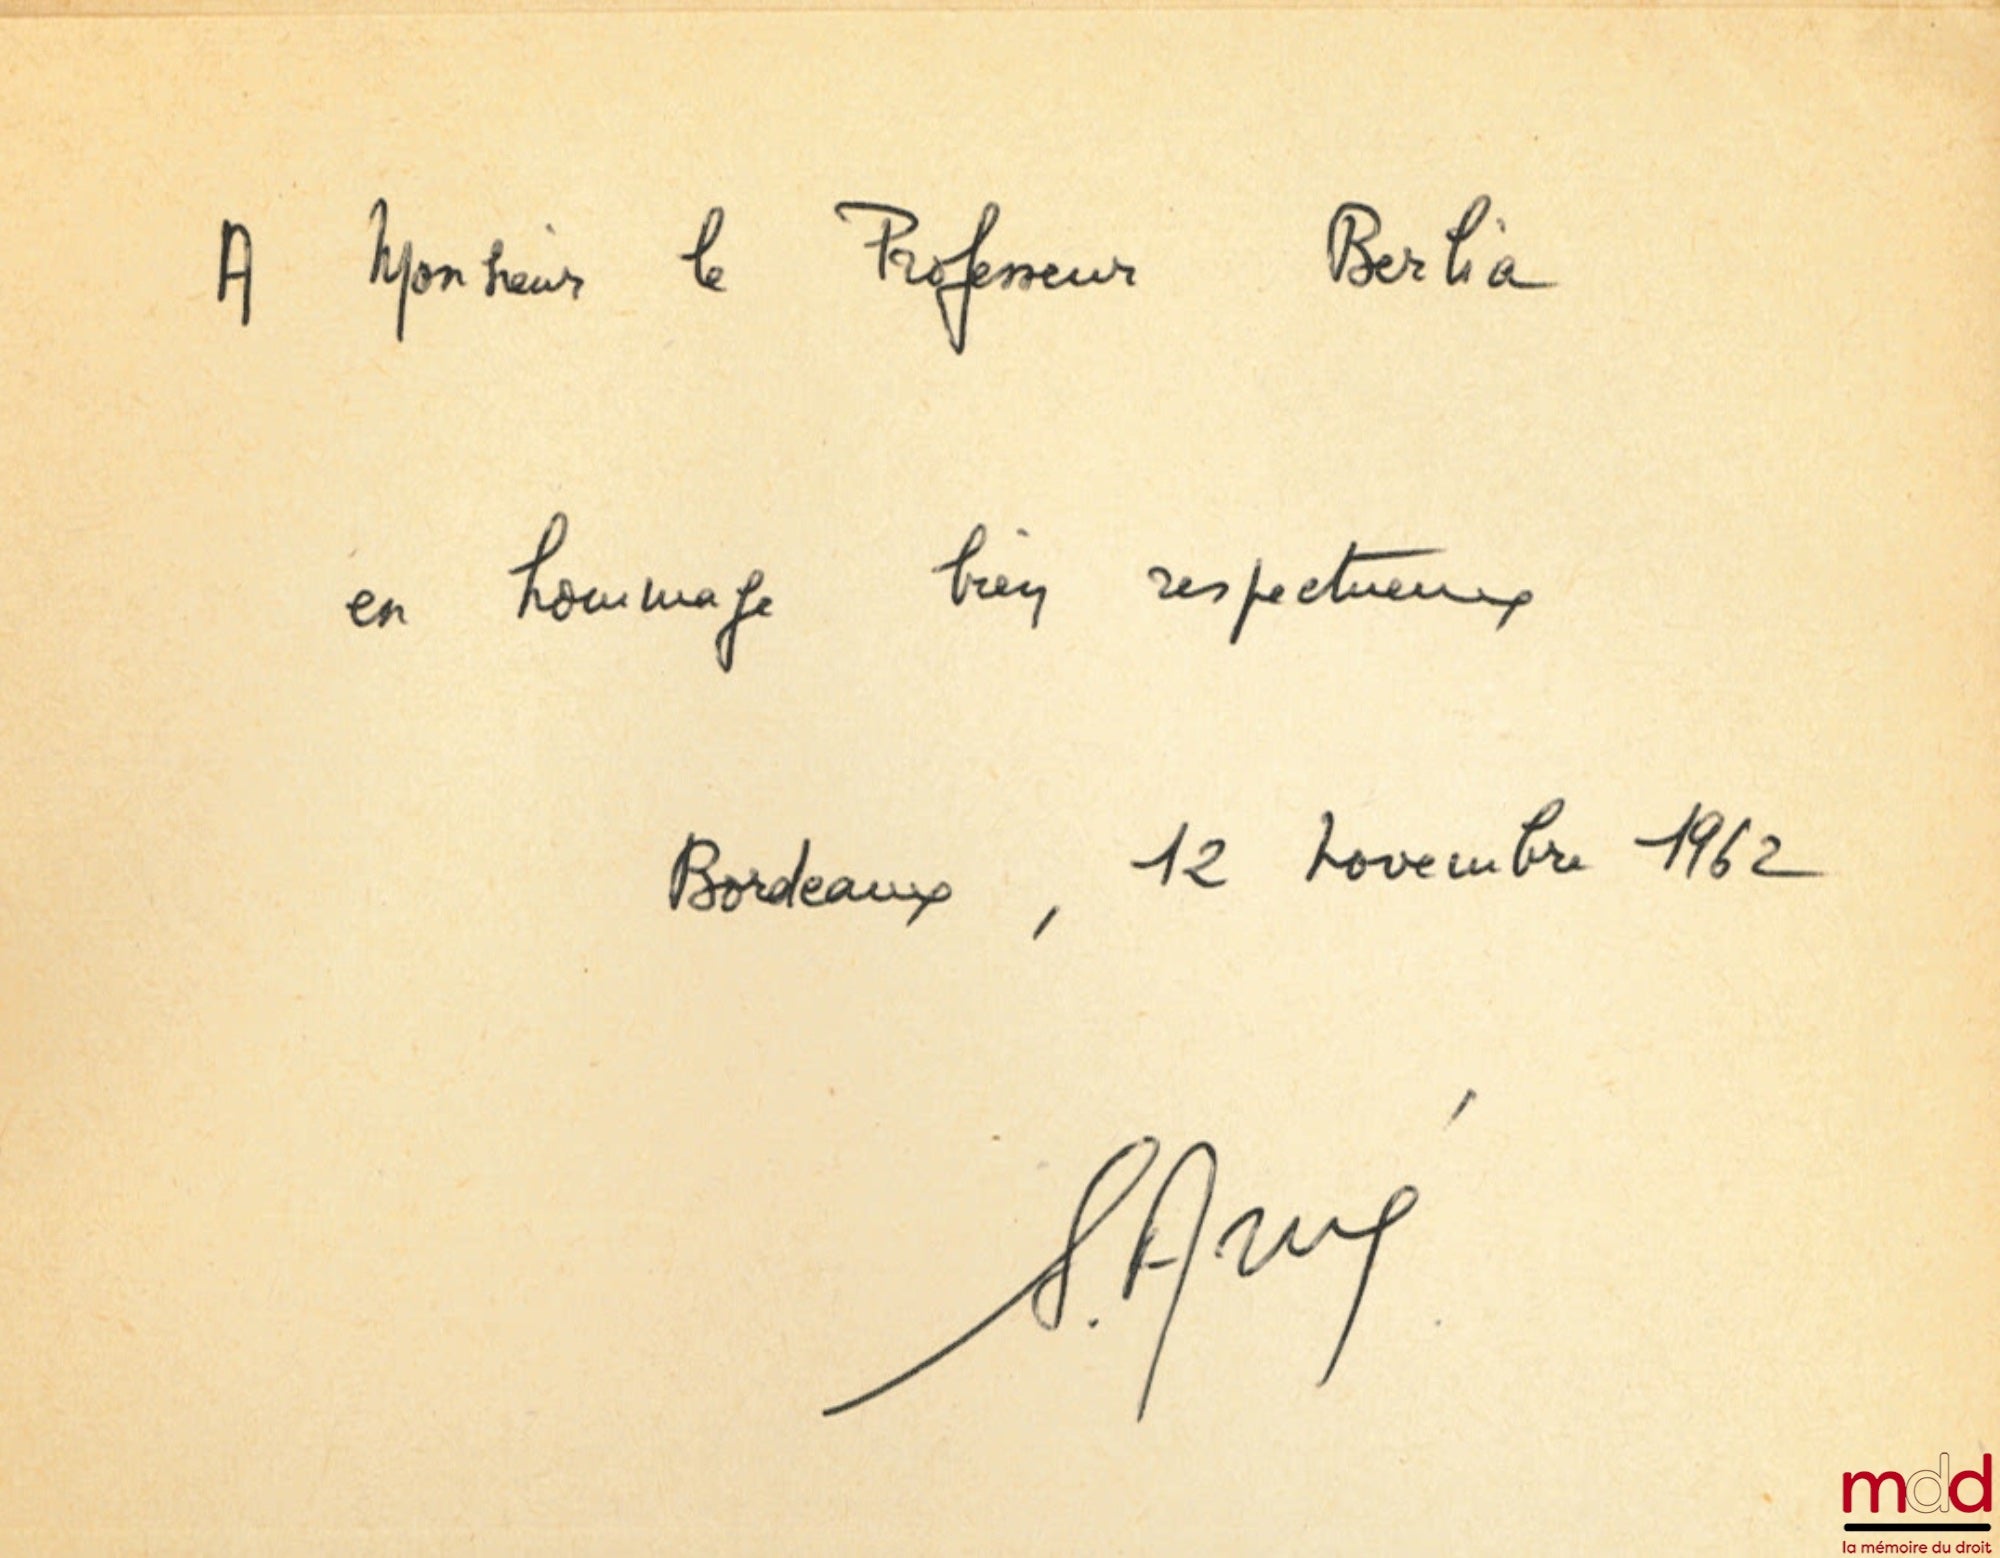 A Monsieur le Professeur Berlia
en hommage bien respectueux
Bordeaux, 12 novembre 1962
S. Arné
mdd
la mémoire du droit